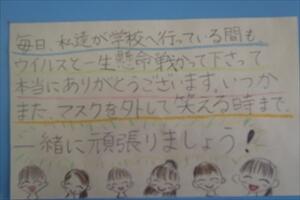 毎日、私達が学校へ行っている間も、
ウイルスと一生懸命戦かって下さって
本当にありがとうございます。いつか
また、マスクを外して笑える時まで、
一緒に頑張りましょう!